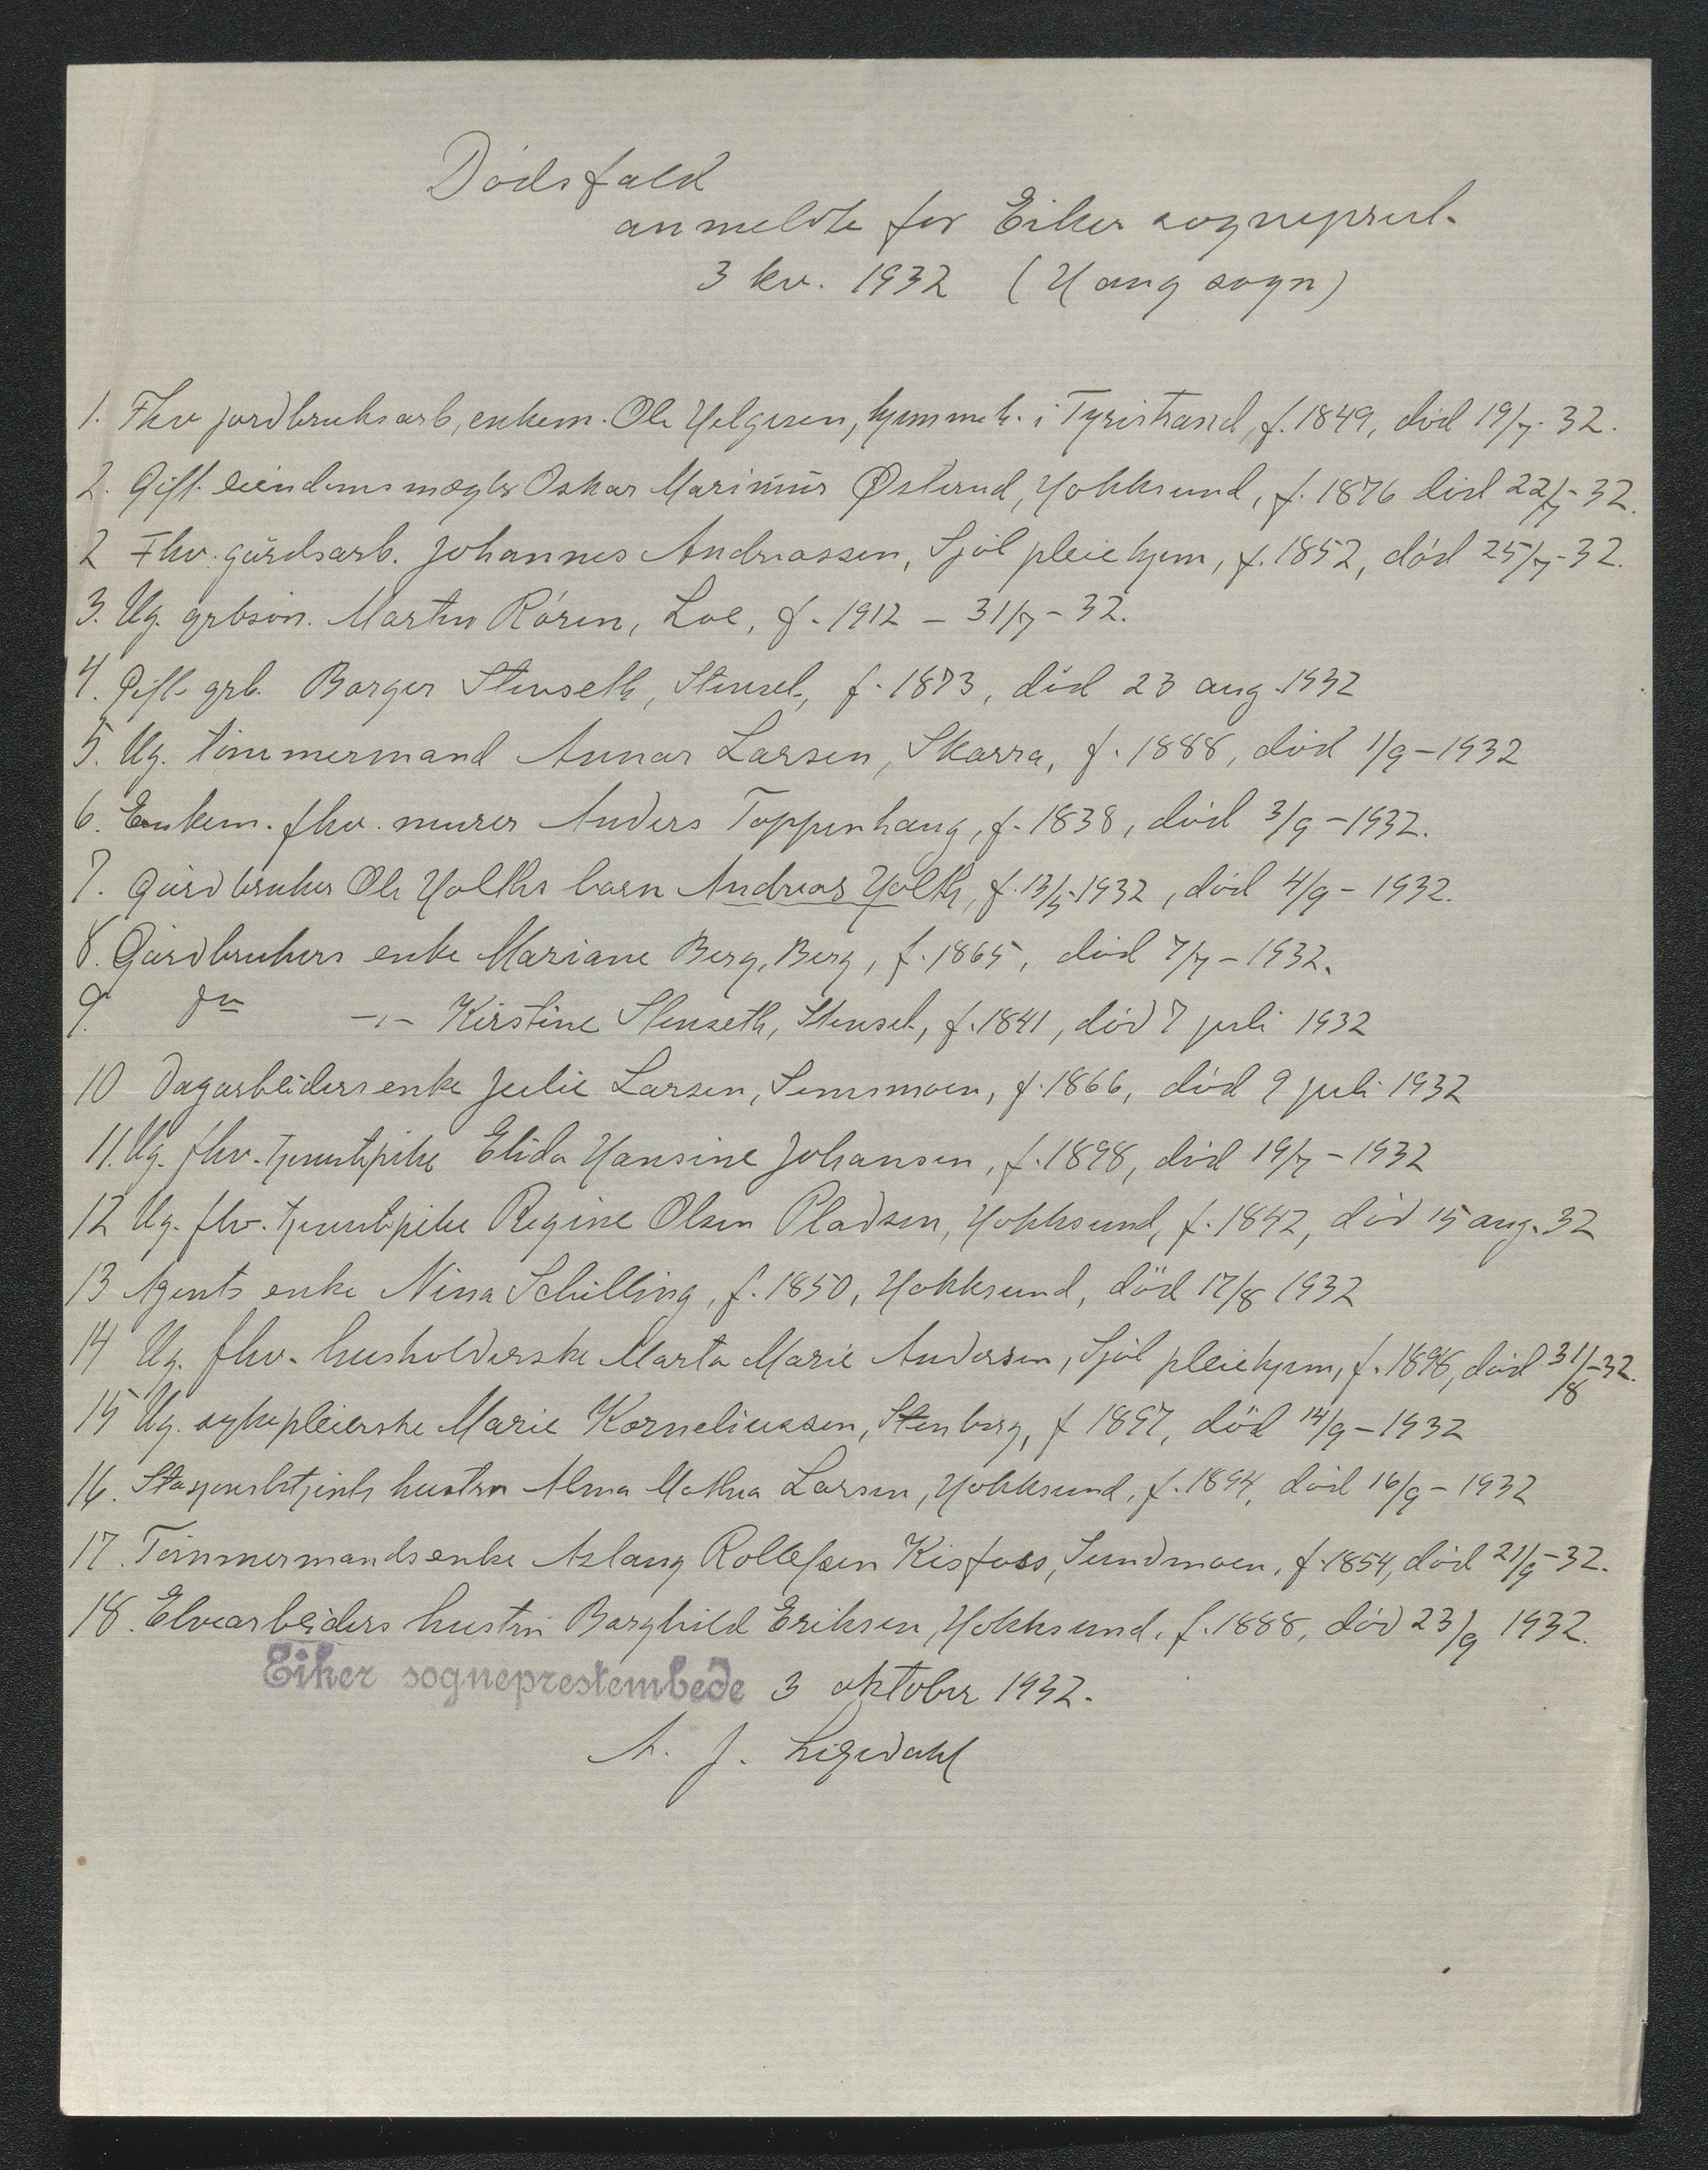 Dödsfald
anmeldte for Eiker sogneprest.
3 kv. 1932 (Haug sogn)
1. Fhv jordbruksarb, enkem. Ole Helgesen, hjemmeh. i Tyristrand, f. 1849, död 19/7-32.
2. Gift. eiendomsmægler Oskar Marinius Østerud, Hokksund, f. 1876 död 22/7-32.
2 Fhv. gårdsarb. Johannes Andreassen, Sjöl pleiehjem, f. 1852, död 25/7-32.
3. Ug. grbsön. Martin Rören, Loe, f. 1912 - 31/7-32.
4. Gift grb. Borger Stenseth, Stenset, f. 1873, död 23 aug 1932
5. Ug. tömmermand Annar Larsen, Skarra, f. 1888, död 1/9-1932
6. Enkem. fhv. murer Anders Toppenhaug, f. 1838, död 3/9-1932.
7. Gårdbruker Ole Holths barn Andreas Holth, f. 13/5-1932, död 4/9-1932.
8. Gårdbrukers enke Mariane Berg, Berg, f. 1865, död 7/7-1932.
9. do -"- Kirstine Stenseth, Stenset, f. 1841, död 7 juli 1932
10 Dagarbeidersenke Julie Larsen, Semsmoen, f. 1866, död 9 juli 1932
11. Ug. fhv. tjenestepike Elida Hansine Johansen, f. 1898, död 19/7-1932
12 Ug. fhv. tjenestepike Regine Olsen Pladsen, Hokksund, f. 1842, död 15 aug. 32
13 Agents enke Nina Schilling, f. 1850, Hokksund, död 17/8 1932
14 Ug. fhv. husholderske Marta Marie Andersen, Sjöl pleiehjem, f. 1898, död 31/8-32.
15 Ug. sykepleierske Marie Korneliussen, Stenberg, f 1897, död 14/9-1932
16. Stasjonsbetjents hustru Alma Mathea Larsen, Hokksund, f. 1894, död 16/9-1932
17. Tömmermandsenke Aslaug Rollefsen Kisfoss, Sundmoen, f. 1854, död 21/9-32.
18. Elvearbeiders hustru Borghild Eriksen, Hokksund. f. 1888, död 23/9 1932.
Eiker sogneprestembede 3 oktober 1932.
A. J.